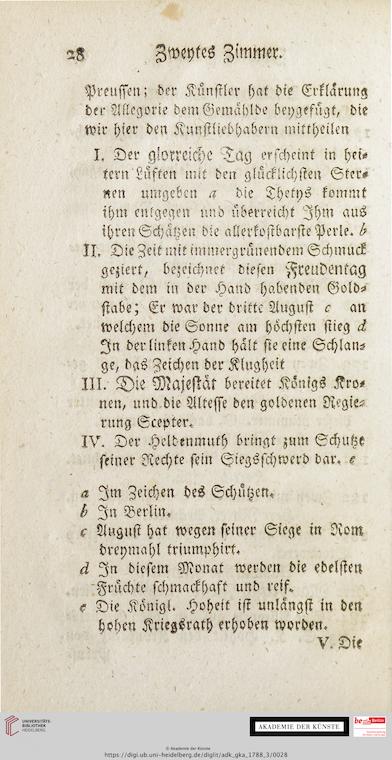 28 Zweytes Zimmer.
Preussen; der Künstler hat die Erklärung
der Allegorie dem Gemählde beygefügt, die
wir hier den Kunstliebhabern mittheilen
I. Der glorreiche Tag erscheint in hei-
tern Lüften mit den glücklichsten Ster-
nen umgeben a die Thetys kommt
ihm entgegen und überreicht Ihm aus
ihren Schätzen die allerkostbarste Perle. b
II. Die Zeit mit immergrünendem Schmuck
geziert, bezeichnet diesen Freudentag
mit dem in der Hand habenden Gold-
stabe; Er war der dritte August c an
welchem die Sonne am höchsten stieg d
In der linken Hand hält sie eine Schlan-
ge, das Zeichen der Klugheit
III. Die Majestät bereitet Königs Kro-
nen, und die Altesse den goldenen Regie-
rung Scepter.
IV. Der Heldenmuth bringt zum Schutze
seiner Rechte sein Siegsschwerd dar. e
a Im Zeichen des Schützen.
b In Berlin.
c August hat wegen seiner Siege in Rom
dreymahl triumphirt.
d In diesem Monat werden die edelsten
Früchte schmackhaft und reif.
e Die Königl. Hoheit ist unlängst in den
hohen Kriegsrath erhoben worden.
V. Die
UNIVERSITÄTS-
BIBLIOTHEK
HEIDELBERG
AKADEMIE DER KÜNSTE
be Berlin
© Akademie der Künste
https://digi.ub.uni-heidelberg.de/diglit/adk_gka_1788_3/0028